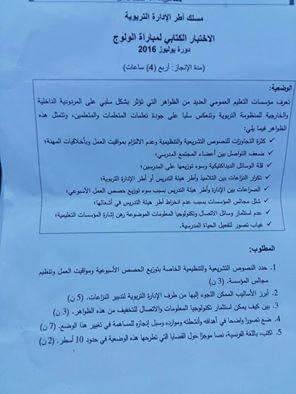 مسلك أطر الإدارة التربوية
الاختبار الكتابي لمباراة الولوج
دورة يوليوز 2016
(مدة الإنجاز: أربع (4) ساعات)
الوضعية:
تعرف مؤسسات التعليم العمومي العديد من الظواهر التي تؤثر بشكل سلبي على المردودية الداخلية
والخارجية للمنظومة التربوية وتنعكس سلبا على جودة تعلمات المتعلمات والمتعلمين، وتتمثل هذه
الظواهر فيما يلي:
• كثرة التجاوزات للنصوص التشريعية والتنظيمية وعدم الالتزام بمواقيت العمل وبأخلاقيات المهنة؛
• ضعف التواصل بين أعضاء المجتمع المدرسي؛
• قلة الوسائل الديداكتيكية وسوء توزيعها على المدرسين؛
• تكرار النزاعات بين التلاميذ وأطر هيئة التدريس أو أطر الإدارة التربوية؛
• الصراعات بين الإدارة وأطر هيئة التدريس بسبب سوء توزيع حصص العمل الأسبوعي؛
• شلل مجالس المؤسسات بسبب عدم انخراط أطر هيئة التدريس في أشغالها؛
• عدم استثمار وسائل الاتصال وتكنولوجيا المعلومات الموضوعة رهن إشارة المؤسسات التعليمية؛
• غياب تصور لتفعيل الحياة المدرسية.
المطلوب:
1. حدد النصوص التشريعية والتنظيمية الخاصة بتوزيع الحصص الأسبوعية ومواقيت العمل وتنظيم
مجالس المؤسسة. (3 ن)
2. أبرز الأساليب الممكن اللجوء إليها من طرف الإدارة التربوية لتدبير النزاعات. (5 ن)
3. بين كيف يمكن استثمار تكنولوجيا المعلومات والاتصال للتخفيف من هذه الظواهر. (3 ن)
4. ضع تصورا واضحا في أهدافه وأنشطته وموارده وسبل إنجازه للمساهمة في تغيير هذا الوضع. (7 ن)
5. اكتب، باللغة الفرنسية، نصا موجزا حول القضايا التي تطرحها هذه الوضعية في حدود 10 أسطر. (2 ن)